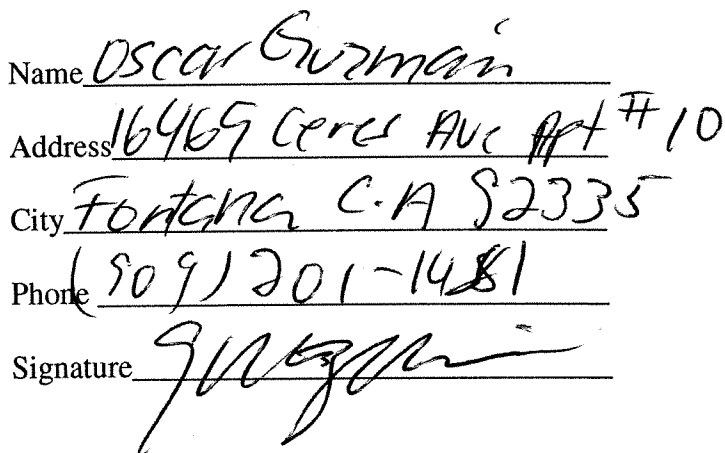 Name Oscar Guzman
Address 16465 Ceres Ave Apt #10
City Fontana C.A 92335
Phone (909) 201-1481
Signature